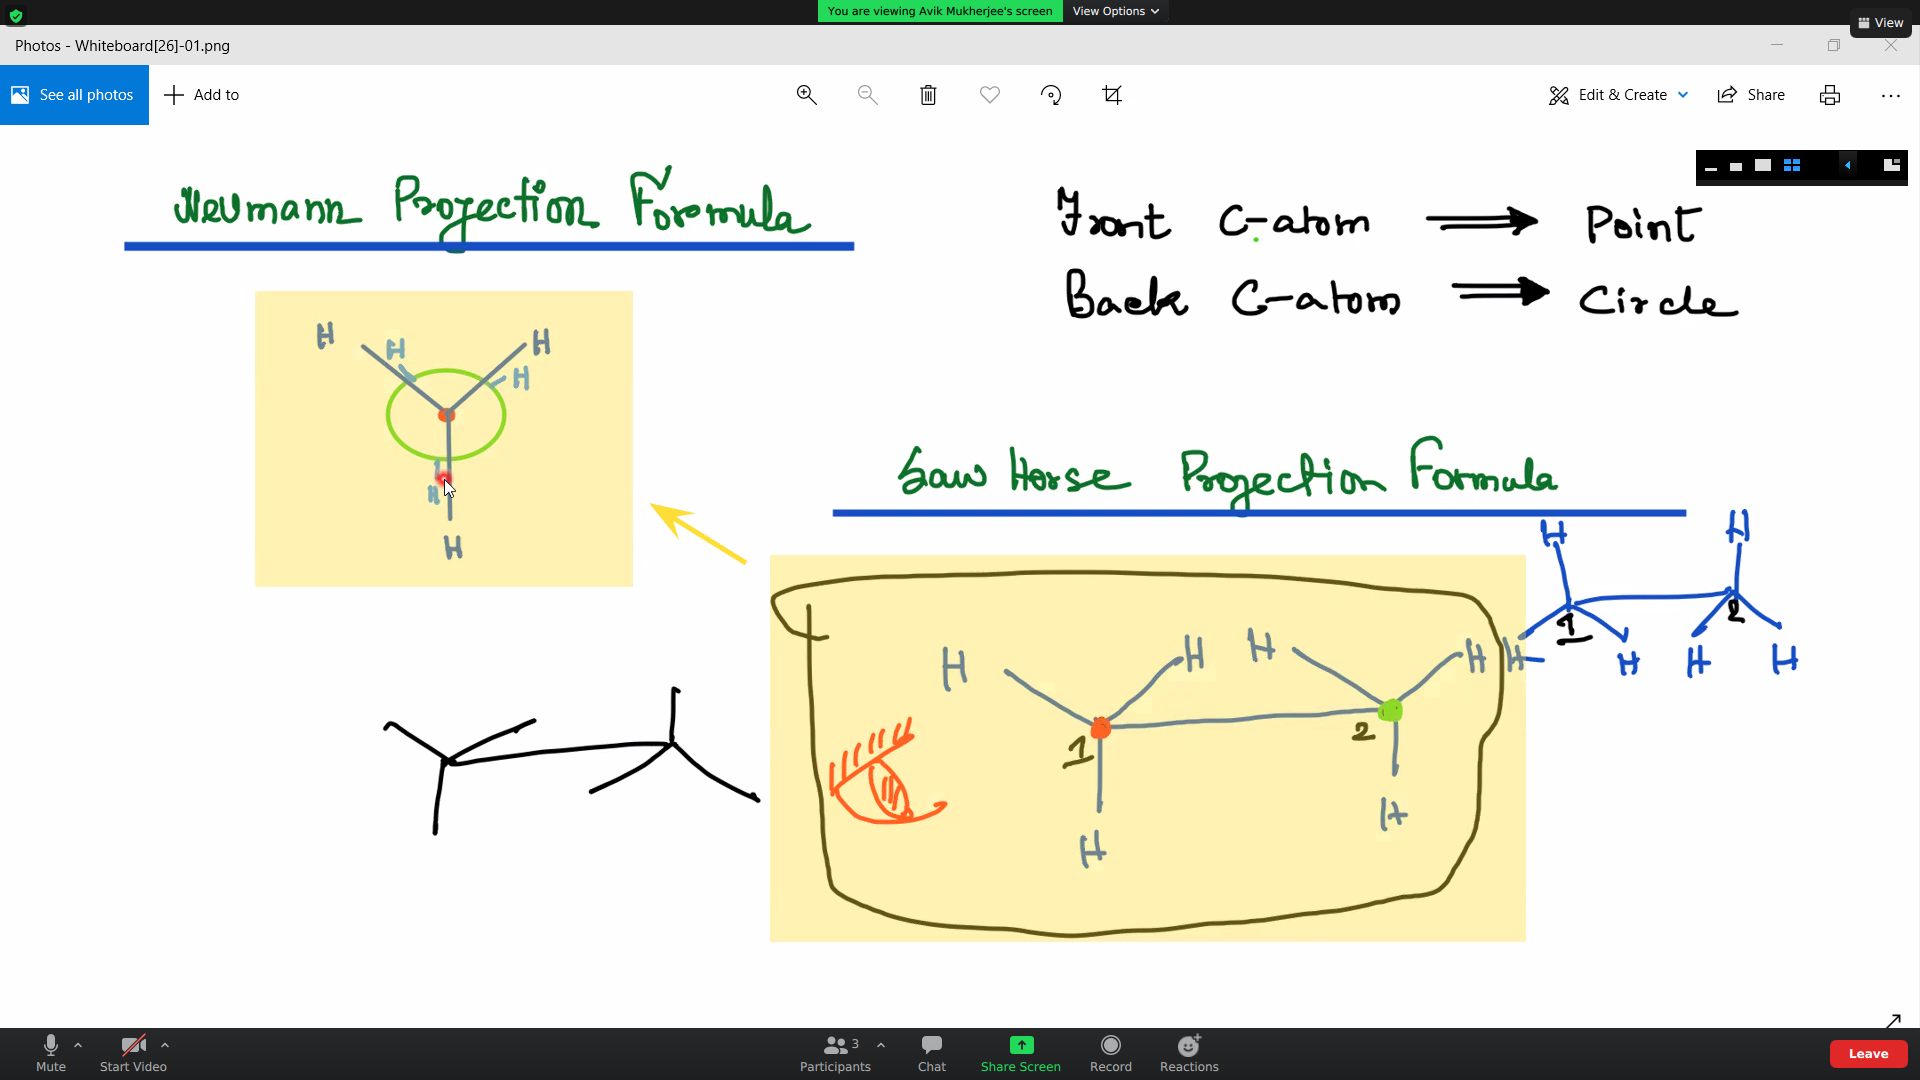 You are viewing Avik Mukherjee's screen
View Options
View
Photos - Whiteboard[26]-01.png
See all photos
Add to
Edit & Create
Share
Neumann Projection Formula
Front C-atom ⟹ Point
Back C-atom ⟹ Circle
H
H
H
H
H
H
Saw Horse Projection Formula
H
H
1
2
H
H
H
H
H
H
H
H
1
2
H
H
Mute
Start Video
Participants
3
Chat
Share Screen
Record
Reactions
Leave